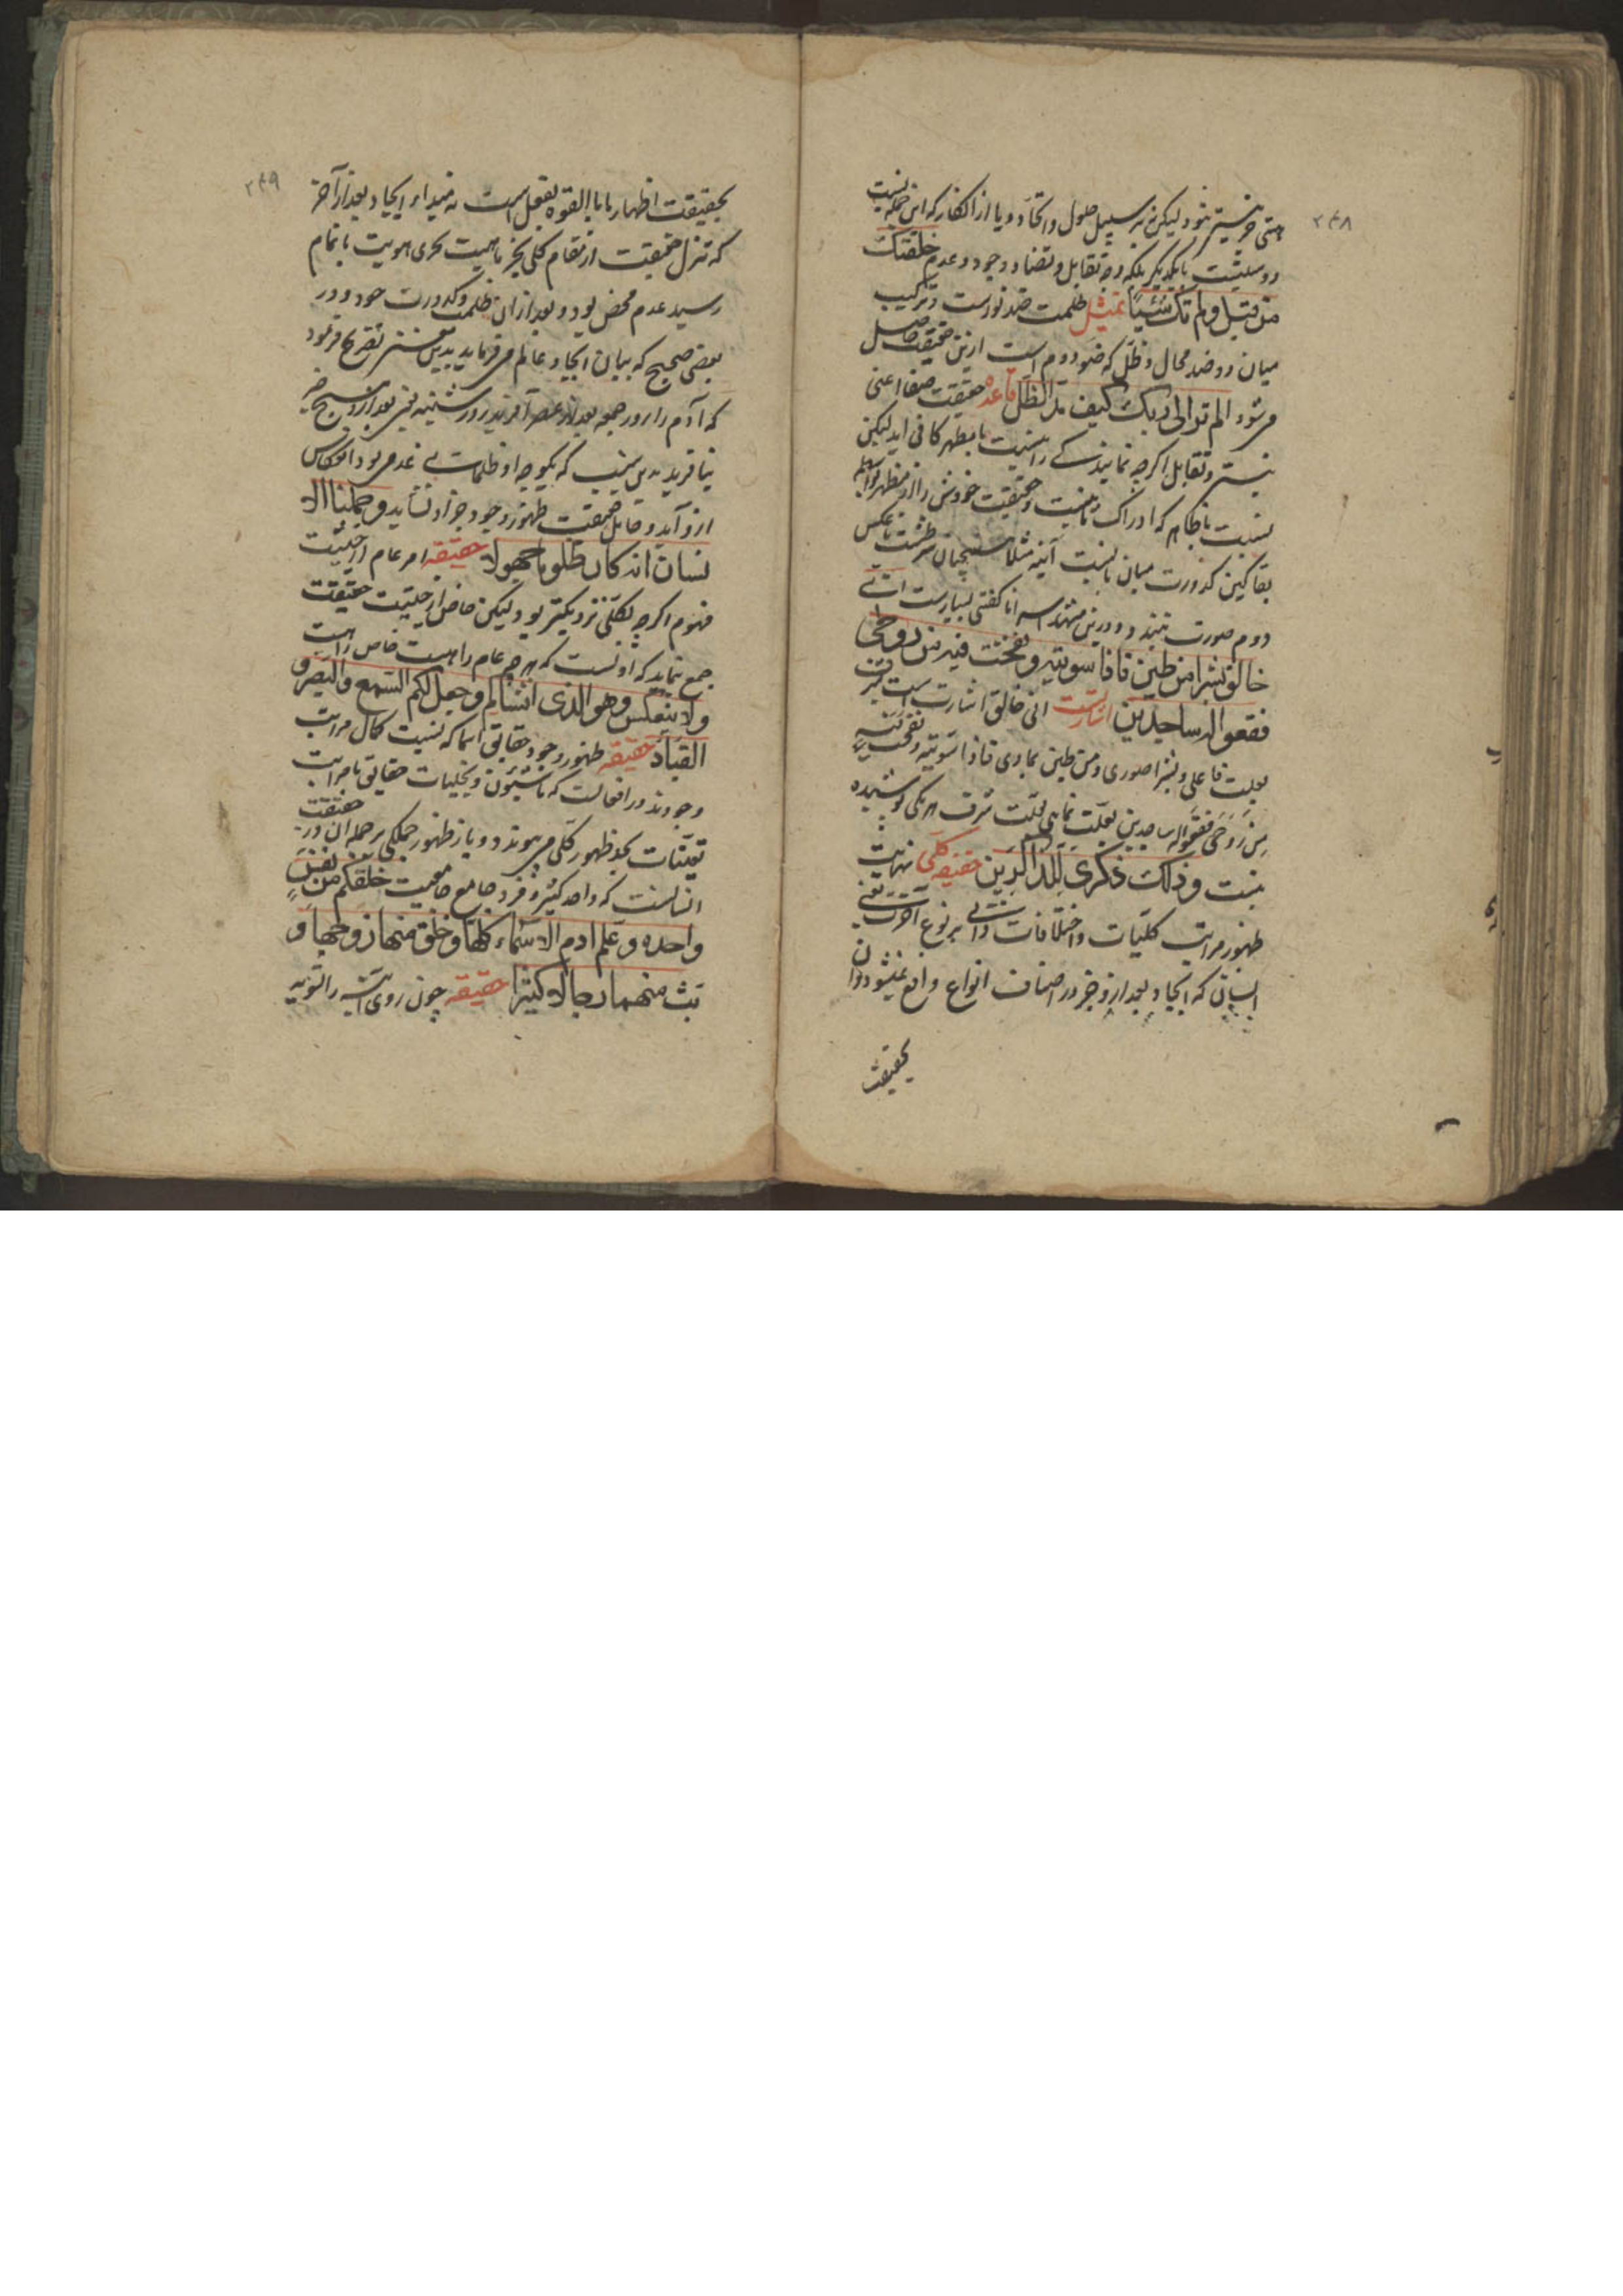 ۲۴۸
هستی جز نیستی نبود لیکن نه بر سبیل حلول و اتحاد و یا از آن گفتار که این جمله نسبت
دو مثلیت با یکدیگر بلکه وجه تقابل و تضاد وجود و عدم خلقتک
من قبل ولم تک شیئا تمثیل ظلمت ضد نورست و ترکیب
میان دو ضد محال و ظل که ضوء دوم است ازین حقیقت حاصل
می شود الم تر الی ربک کیف مد الظل قاعده حقیقت صفا اعنی
نیستی و تقابل اگر چه نمایندگی را نسبت با مظهر کافی اید لیکن
نسبت با ظاهر که ادراک انیت و حقیقت خودش را از مظهر
بقا کین کدورت میان بایست آینه مثلا همچنان شرطست تا عکس
دوم صورت بندد و درین مشهد اسرار ناگفتنی بسیارست انی
خالق بشرا من طین فاذا سویته و نفخت فیه من روحی
فقعوا له ساجدین اشارت انی خالق اشارت است
بعلت فاعلی و بشرا صوری و من طین بمادی فاذا سویته و نفخت فیه
من روحی فقعوا له ساجدین بعلت غایی بعلت شرف هر یکی پوشیده
نیست و ذلک ذکری للذاکرین حقیقه کلی نهایت
ظهور مراتب کلیات و اختلافات ذاتی بر نوع آخرست یعنی
انسانی که ایجاد بعد ازو جز در اصناف انواع واقع نمیشود و ان
بحقیقت
۲۴۹
بحقیقت اظهار ما بالقوه بفعل است نه مبداء ایجاد بعد از آخر
که تنزل حقیقت از مقام کلی بجز ماهیت بجزی هویت باتمام
رسید عدم محض بود و بعد از ان ظلمت و کدورت حدود در
بعضی صحیح که بیان ایجاد عالم می فرماید بدین معنی تصریح فرمود
که آدم را روز جمعه بعد از عصر آفرید روز شنبه یعنی بعد ازو هیچ چیز
نیافرید بدین سبب که یکوجه او ظلمات بی عدمی بود انعکاس
ازو آید و قابل حقیقت ظهور وجود جز او نشاید و حملها الا
نسان انه کان ظلوما جهولا حقیقه امر عام از حیثیت
فهوم اگر چه بکلی نزدیکتر بود لیکن خاص از حیثیت حقیقت
جمع نماید که اوست که هر چه عام را هست خاص را هست
ولا ینعکس وهو الذی انشالکم وجعل لکم السمع والبصر و
الفئاد حقیقه ظهور وجود حقایق اسما که نسبت کمال مراتب
وجودند در افعالست که با شئون و تجلیات حقایق با مراتب
تعینات بحد ظهور کلی می پیوندد و باز ظهور جملگی بر جمله ان در حقیقت
انسانست که واحد کثیر و فرد جامع جامعیت خلقکم من نفس
واحده و علم ادم الاسماء کلها وخلق منها زوجها و
بث منهما رجالا کثیرا حقیقه چون روی آینه را تسویه